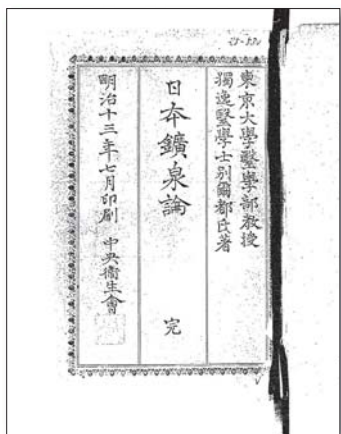 東京大學醫學部教授
獨逸醫學士別爾都氏著
日本鑛泉論
完
明治十三年七月印刷 中央衞生會